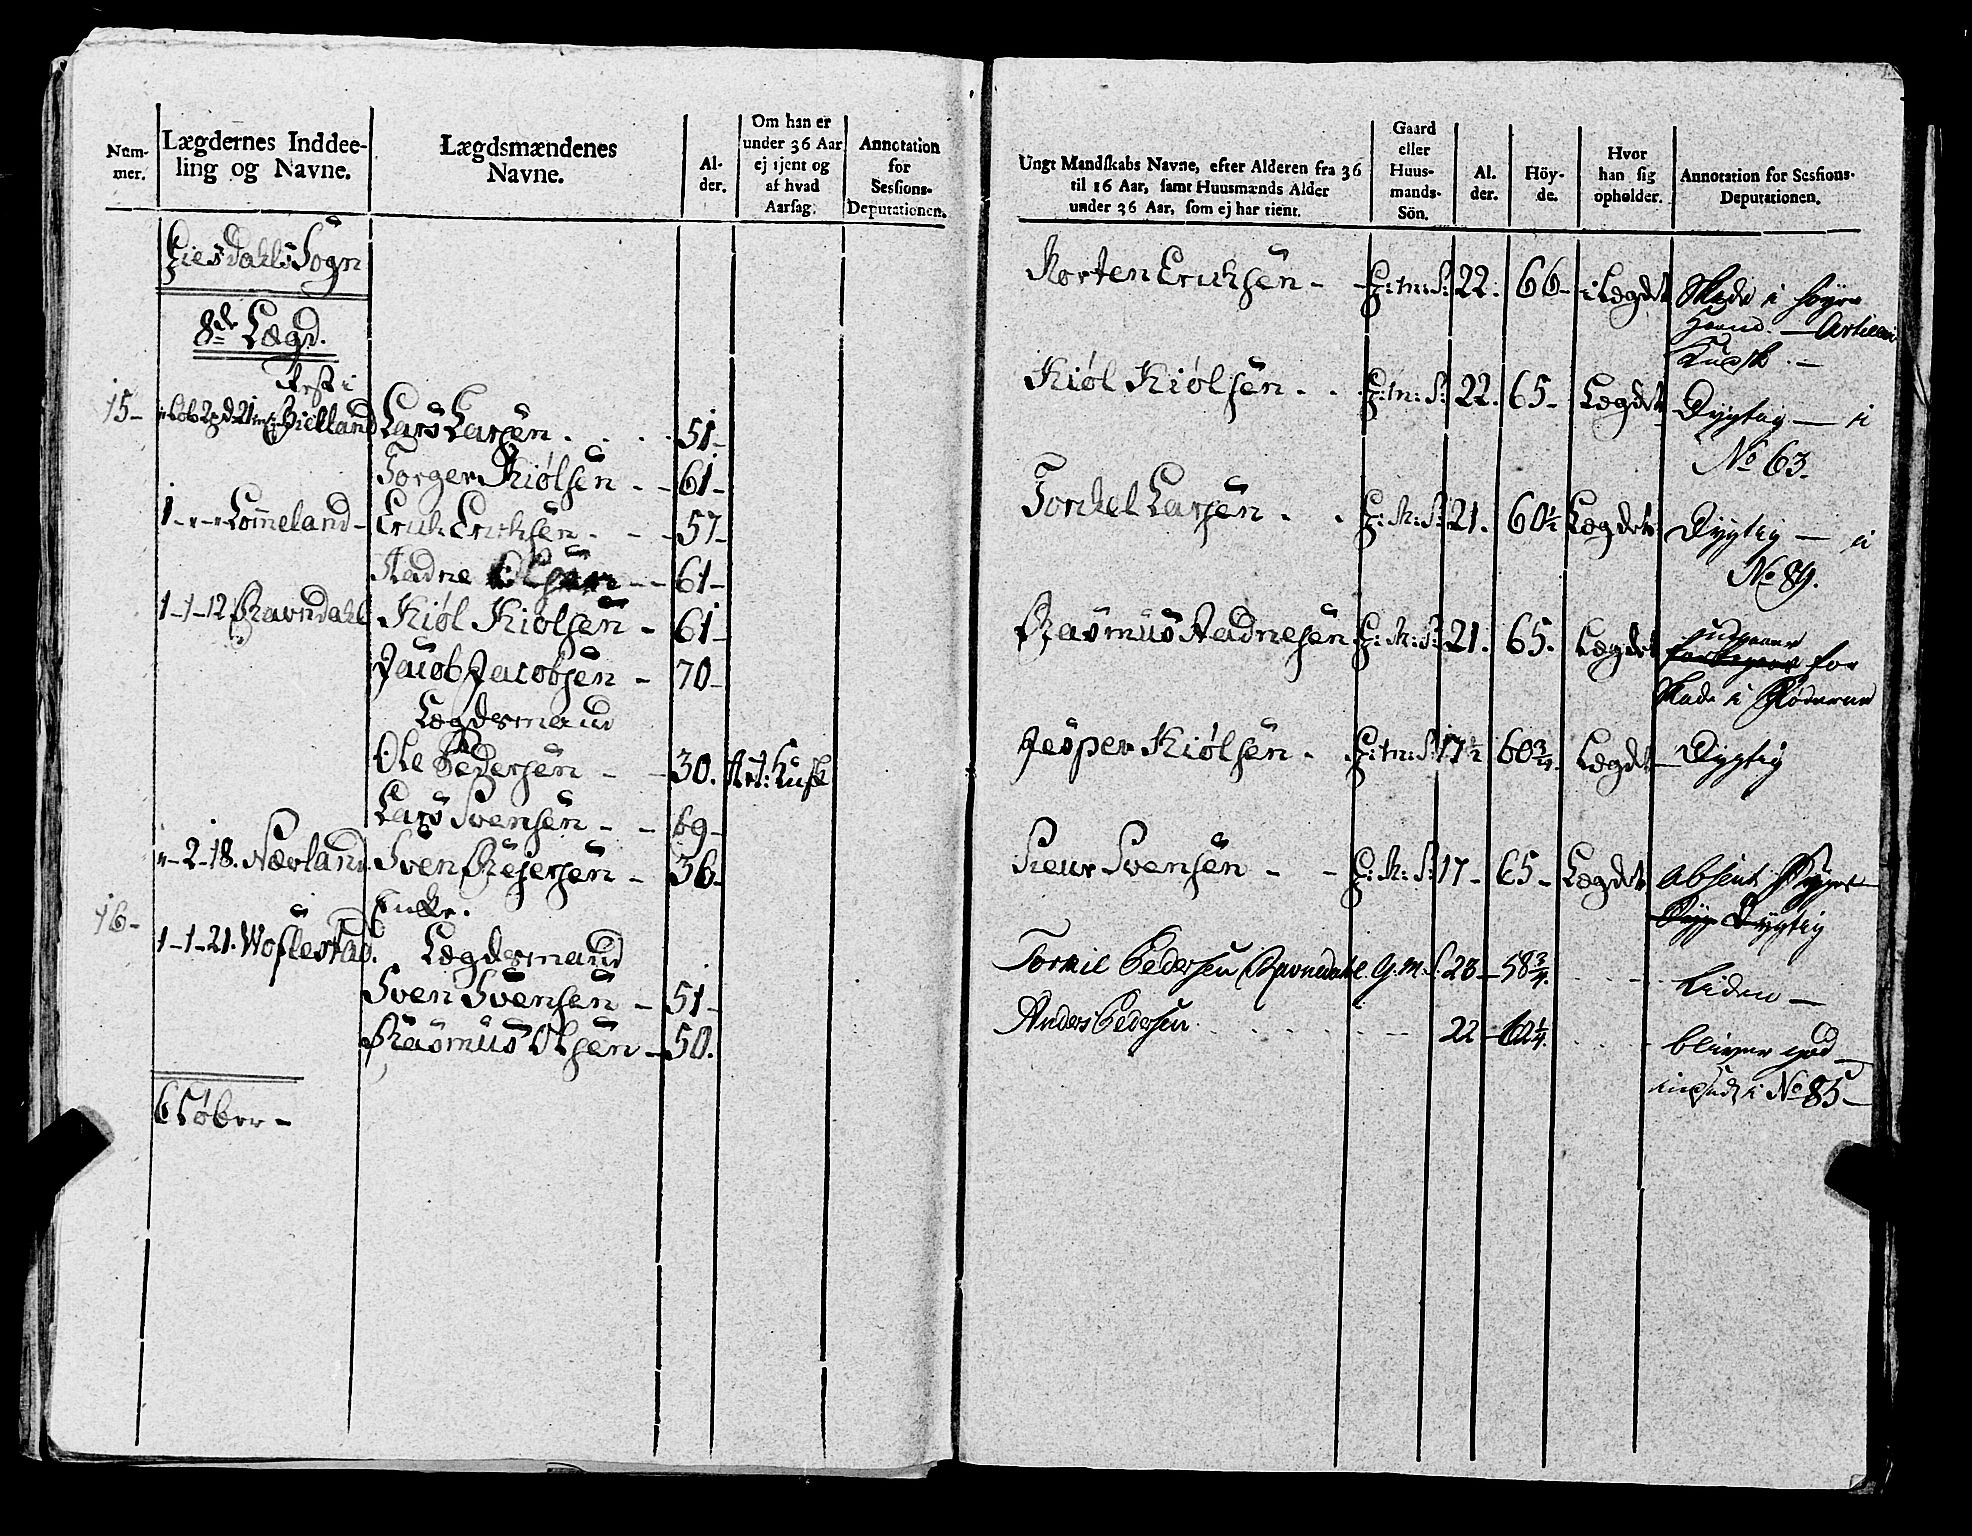 Nummer.
Lægdernes Inddeeling og Navne.
Lægdsmændenes Navne.
Alder.
Om han er under 36 Aar ej tjent og af hvad Aarsag.
Annotation for Sessions-Deputationen.
Giesdahls Sogn
8de Lægd.
Rest i
15- Bielland Lars Larsen . . . . 51-
Torger Kiølsen - - 61-
1-"-" Lomeland - Erich Erichsen - - 57-
Aadne Olsen - - 61-
1-1-12 Ravndahl Kiøl Kiølsen - 61-
Jacob Jacobsen - 70-
Lægdsmand
Ole Pedersen - - 30. Art: Kusk
Lars Svensen - - 69-
"-2-18. Nævland Sven Rejersen - 36-
16- Enke.
1-1-21. Woflestad. Lægdsmand
Sven Svensen - 51-
Rasmus Olsen - 50.
6 Løber -
Ungt Mandskabs Navne, efter Alderen fra 36 til 16 Aar, samt Huusmænds Alder under 36 Aar, som ej har tient.
Gaard eller Huusmands-Sön.
Alder.
Höyde.
Hvor han sig opholder.
Annotation for Sessions-Deputationen.
Morten Erichsen - - G:m:S: 22. 66- i Lægdet Skade i høyre
Haand. — Artilleri
Kusk . —
Kiøl Kiølsen . . G:m:S: 22. 65- Lægdet Dygtig — i
No 63.
Torchel Larsen . . G:M:S: 21. 60½ Lægdet Dygtig — i
No 89.
udgaaer
Rasmus Aadnesen G:M:S: 21. 65. Lægdet for
Skade i Fødderne
Jesper Kiølsen . . G:m:S: 17½ 60¾. Lægdet Dygtig
Svensen - - G:M:S: 17- 65- Lægdet absent
Dygtig
Torkil Pedersen Ravnedahl. G.M.S. 23-58¾. . . . Liden —
Anders Pedersen . . . . . . 22-62¼. . . . bliver god
i No 85-